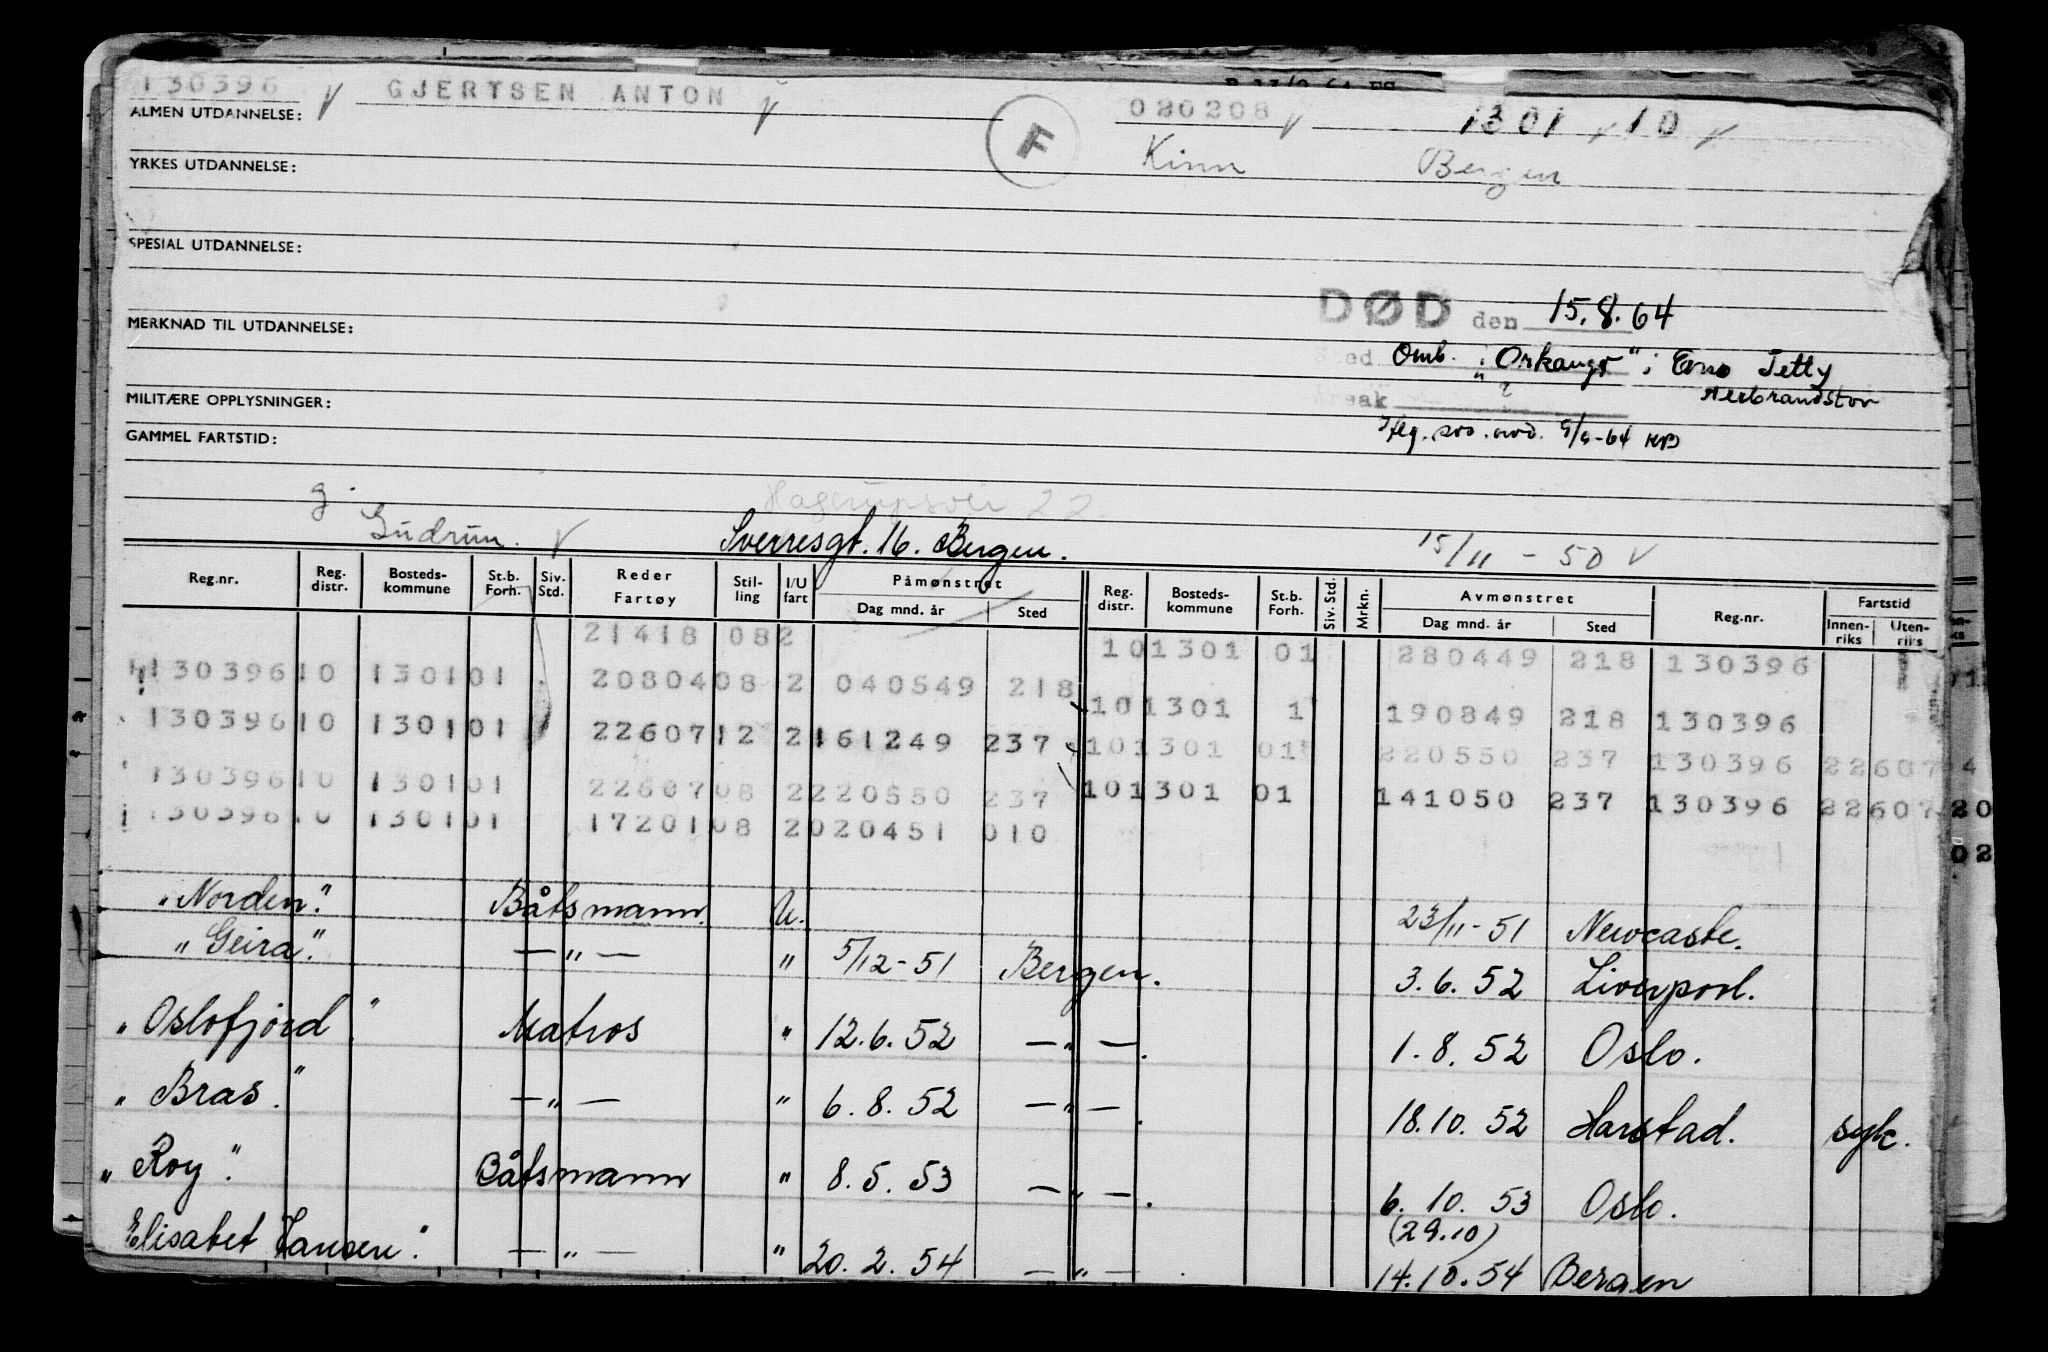 130396 V GJERTSEN ANTON V 020208 V 1301 V 10 V
ALMEN UTDANNELSE:
F
Kinn Bergen
YRKES UTDANNELSE:
SPESIAL UTDANNELSE:
DØD den 15.8.64
MERKNAD TIL UTDANNELSE:
Sted Omb. "Orkanger" i Eno Jetty
Årsak
MILITÆRE OPPLYSNINGER:
GAMMEL FARTSTID:
g. Hagerupsvei 22.
Gudrun. V Sverresgt. 16. Bergen. 15/11 - 50 V
Reg.nr. Reg. distr. Bosteds-kommune St.b. Forh. Siv. Std. Reder Fartøy Stil-ling I/U fart Påmønstret Dag mnd. år Sted Reg. distr. Bosteds-kommune St.b. Forh. Siv. Std. Mrkn. Avmønstret Dag mnd. år Sted Reg.nr. Fartstid Innen-riks Uten-riks
21418 082 101301 01 280449 218 130396
130396 10 1301 01 20804 08 2 040549 218 101301 1 190849 218 130396
130396 10 1301 01 22607 12 2 161249 237 101301 01 220550 237 130396 22607 4
130396 10 1301 01 22607 08 2 220550 237 101301 01 141050 237 130396 22607 20
130396 10 1301 01 17201 08 2 020451 010 02
"Norden". Båtsmann. U. 23/11-51 Newcastle.
"Geira". — " — " 5/12-51 Bergen. 3.6.52 Liverpool.
"Oslofjord". Matros " 12.6.52 — " —. 1.8.52 Oslo.
"Bras." — " — " 6.8.52 — " —. 18.10.52 Harstad. syk.
"Roy". Båtsmann " 8.5.53 — " —. 6.10.53 Oslo.
(29.10)
Elisabet Hansen". — " — " 20.2.54 — " — 14.10.54 Bergen